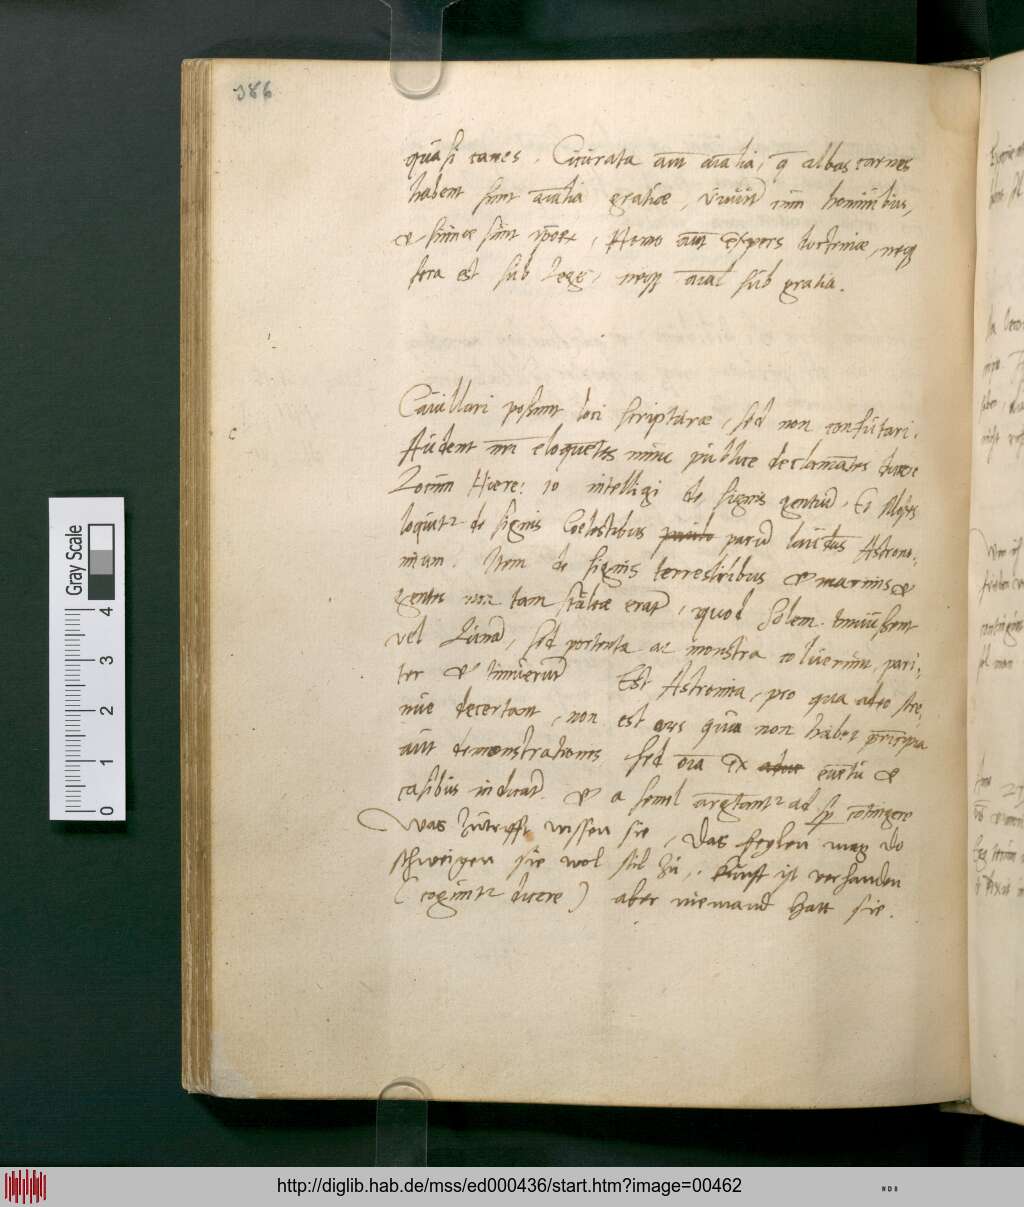 386
quasi canes. Cicurata aut aialia, q albas carnes
habent sunt aialia gratiae, vivut cum hominibus,
& simiae sunt ipsor, Homo aut expers doctrinae, neq
fera est sub lege, neq aial sub gratia.
Cavillari possunt loci scripturae, sed non confutari.
Audent nri eloquetes nunc publice declamates ducere
Locum Hiere: 10 intelligi de signis gentiu. Et Mosis
loquit de signis Coelestibus paru laudas Astrono:
miam. Item de signis terrestribus & marinis &
gentes non tam stultae erat, quod Solem timuissent
vel Luna, sed portenta ac monstra coluerunt, pari:
ter & timuerut Est Astronomia, pro qua adeo stre
nue decertant, non est ars quia non habet principia
aut demonstrationes, sed oia ex evetu &
casibus indicat. & a semel argutant ad sp contingere
Was zutrifft wissen sie, Das feylen mag do
schweigen sie wol stil zu, kunst ist verhanden
(coguntr dicere) aber niemand hatt sie.
Gray Scale
0 1 2 3 4
http://diglib.hab.de/mss/ed000436/start.htm?image=00462